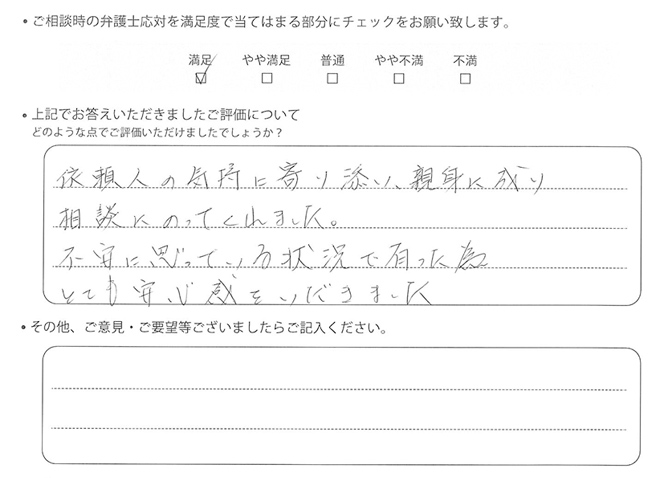 ・ご相談時の弁護士応対を満足度で当てはまる部分にチェックをお願い致します。
満足 やや満足 普通 やや不満 不満
・上記でお答えいただきましたご評価について
どのような点でご評価いただけましたでしょうか？
依頼人の気持に寄り添い、親身に成り
相談にのってくれました。
不安に思っている状況で有った為
とても安心感をいだきました
・その他、ご意見・ご要望等ございましたらご記入ください。